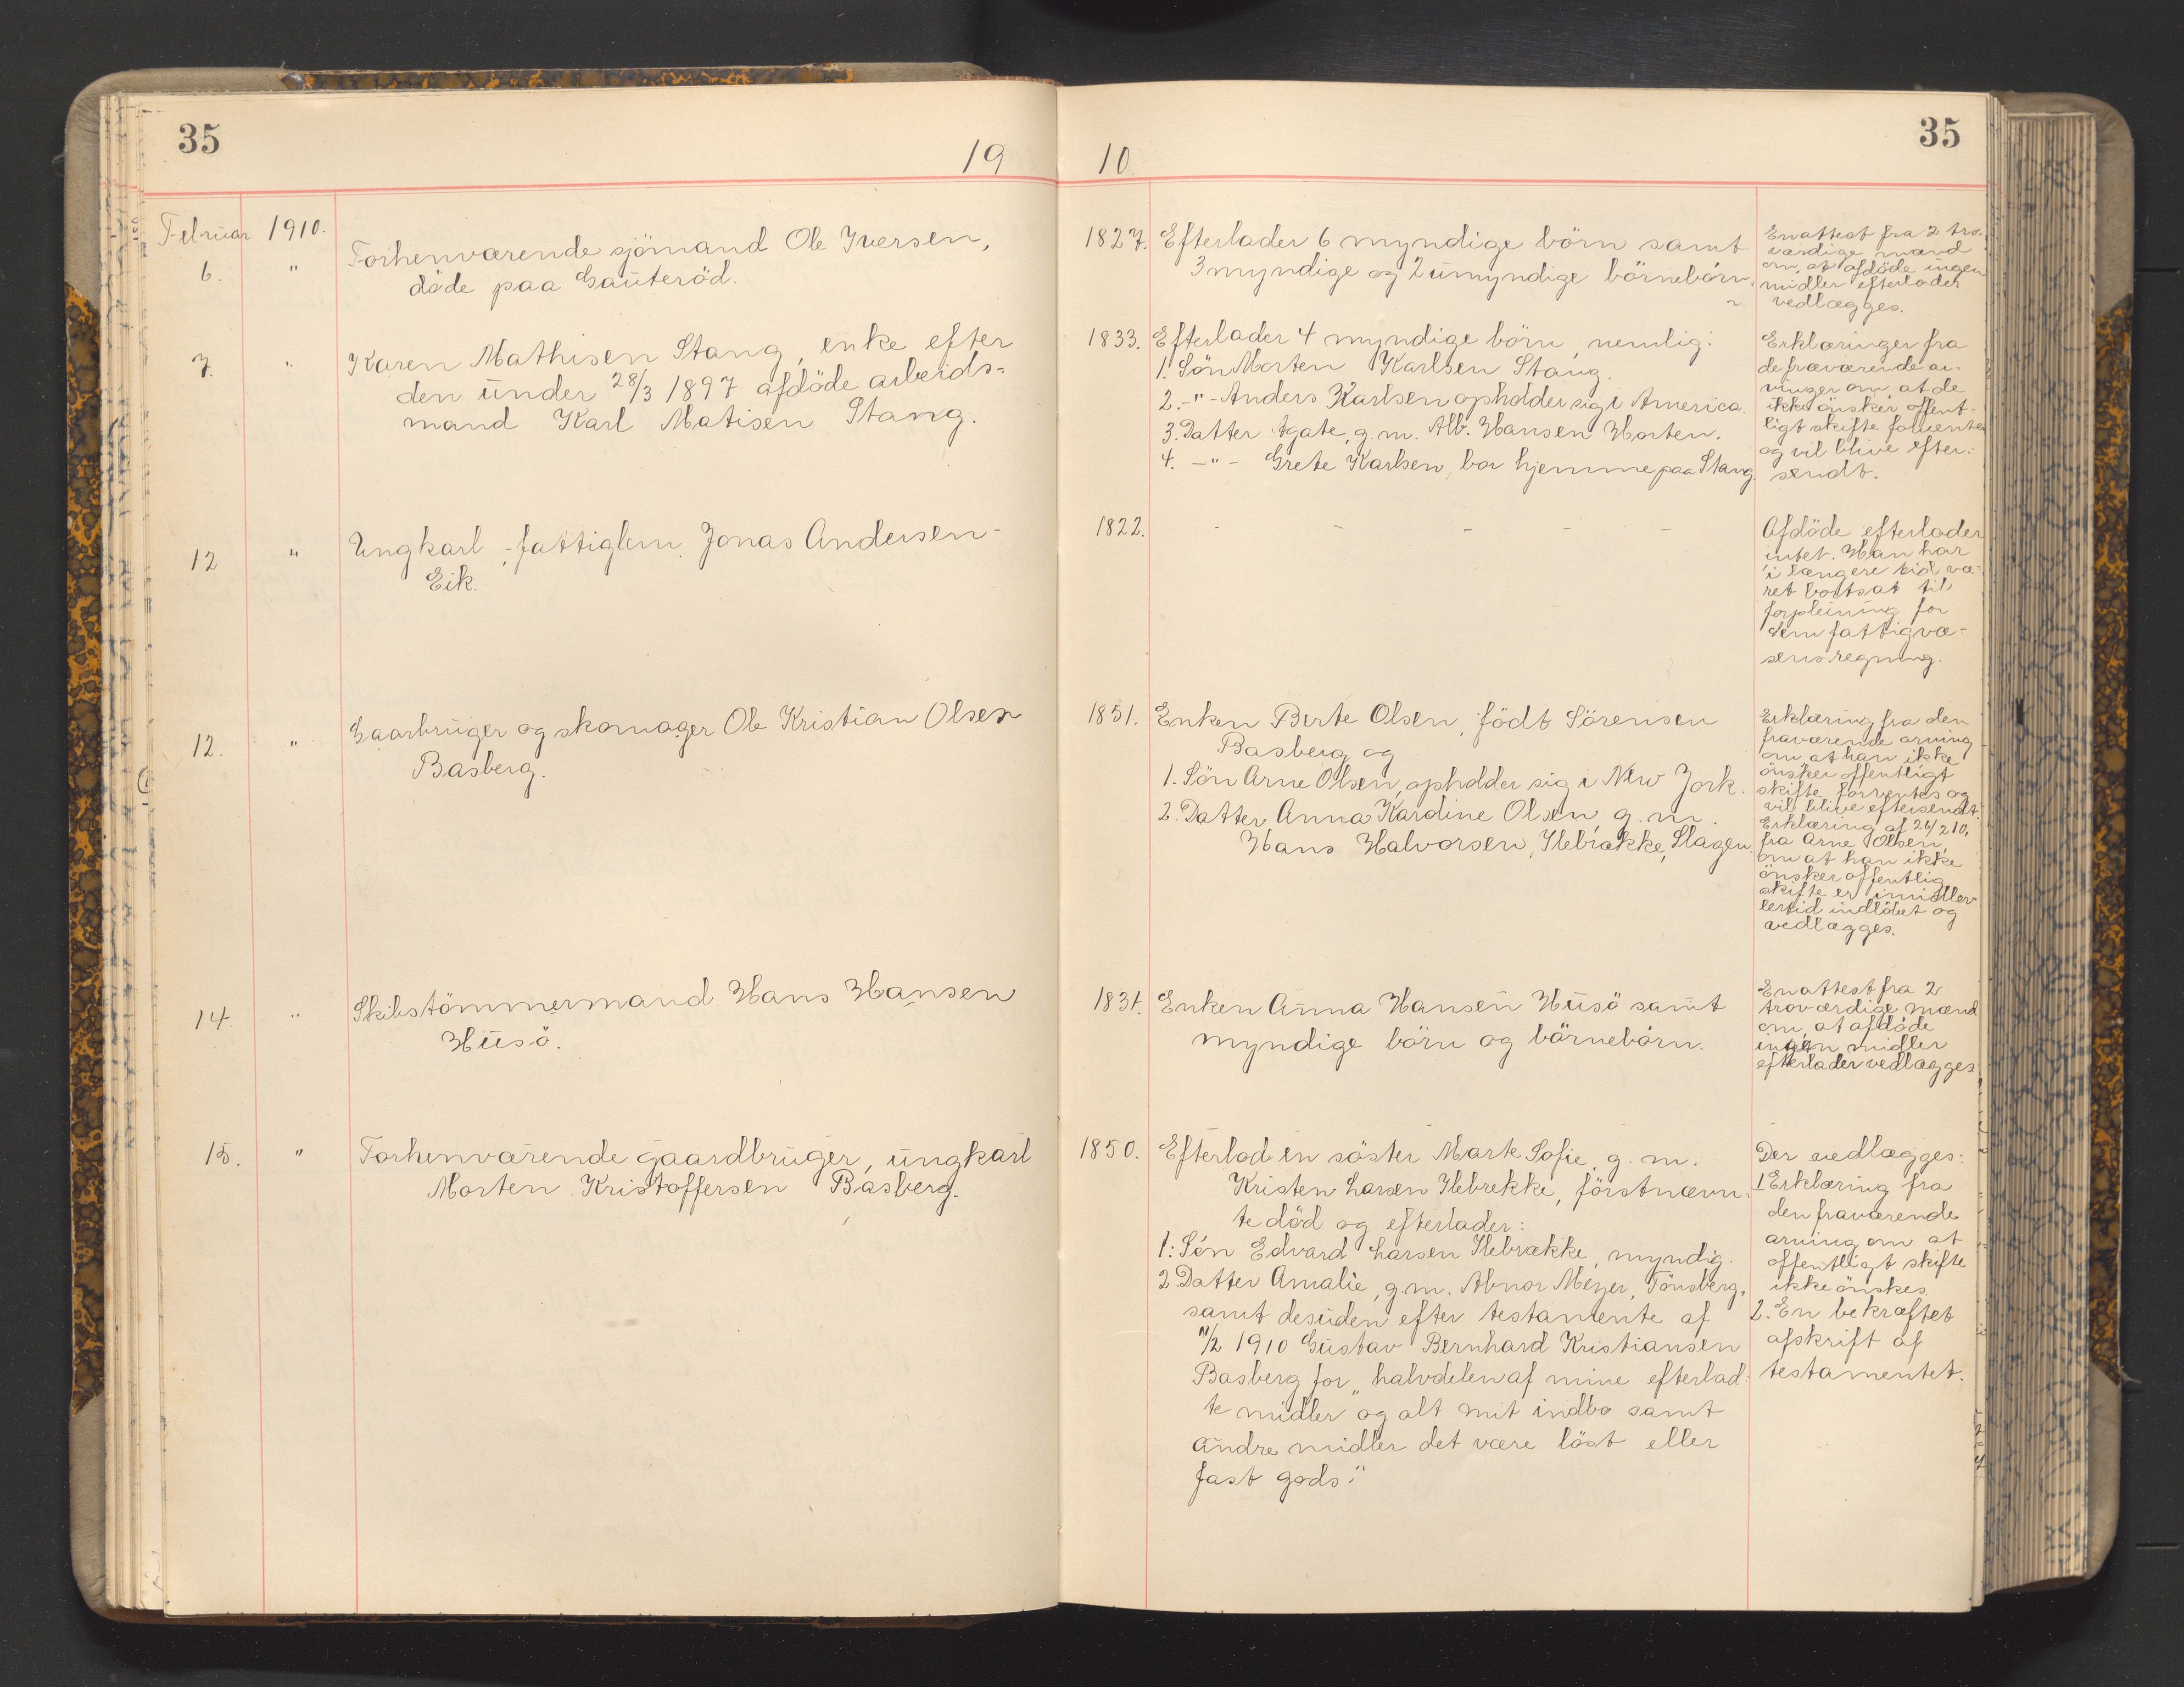 35
19
Februar 1910.
6. " Forhenværende sjömand Ole Iversen,
döde paa Gauteröd.
7. " Karen Mathisen Stang, enke efter
den under 28/3 1897 afdöde arbeids-
mand Karl Matisen Stang.
12 " Ungkarl, fattiglem Jonas Andersen
Eik.
12. " Gaarbruger og skomager Ole Kristian Olsen
Basberg.
14. " Skibstömmermand Hans Hansen
Husö.
15. " Forhenværende gaardbruger, ungkarl
Morten Kristoffersen Basberg.
35
10.
1827. Efterlader 6 myndige börn samt
3 myndige og 2 umyndige börnebörn.
En attest fra 2 tro-
værdige mænd
om, at afdöde ingen
midler efterlader
vedlægges.
1833. Efterlader 4 myndige börn, nemlig:
1. Sön Morten Karlsen Stang.
2. -"- Anders Karlsen opholder sig i America.
3. Datter Agate, g.m. Alb. Hansen Horten.
4. -"- Grete Karlsen, bor hjemme paa Stang.
Erklæringer fra
de fraværende ar-
vinger om, at de
ikke önsker offent-
ligt skifte forventes
og vil blive efter-
sendt.
1822. - - - - -
Afdöde efterlader
intet. Han har
i længere tid væ-
ret bortsat til
forpleining for
Sem fattigvæ-
sens regning.
1851. Enken Berte Olsen, födt Sörensen
Basberg og
1. Sön Arne Olsen, opholder sig i New York.
2. Datter Anna Karoline Olsen, g.m.
Hans Halvorsen, Ilebrække, Slagen.
Erklæring fra den
fraværende arving
om at han ikke
önsker offentligt
skifte forventes og
vil blive eftersendt.
Erklæring af 26/2 10,
fra Arne Olsen,
om at han ikke
önsker offentlig
skifte er imidler
lertid indlöbet og
vedlægges.
1831. Enken Anna Hansen Husö samt
myndige börn og börnebörn.
En attest fra 2
troværdige mænd
om, at afdöde
ingen midler
efterlader vedlægges
1850. Efterlod en söster Marte Sofie, g.m.
Kristen Larsen Ilebrekke, förstnævn-
te död og efterlader:
1: Sön Edvard Larsen Ilebrække, myndig.
2 Datter Amalie, g.m. Abnor Meyer, Tönsberg,
samt desuden efter testamente af
11/2 1910 Gustav Bernhard Kristiansen
Basberg for "halvdelen af mine efterlad-
te midler og alt mit indbo samt
andre midler det være löst eller
fast gods."
Der vedlægges:
1 Erklæring fra
den fraværende
arving om at
offentligt skifte
ikke önskes.
2. En bekræftet
afskrift af
testamentet.